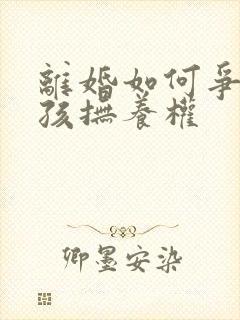 離婚如何爭
孩撫養權
卿墨安染